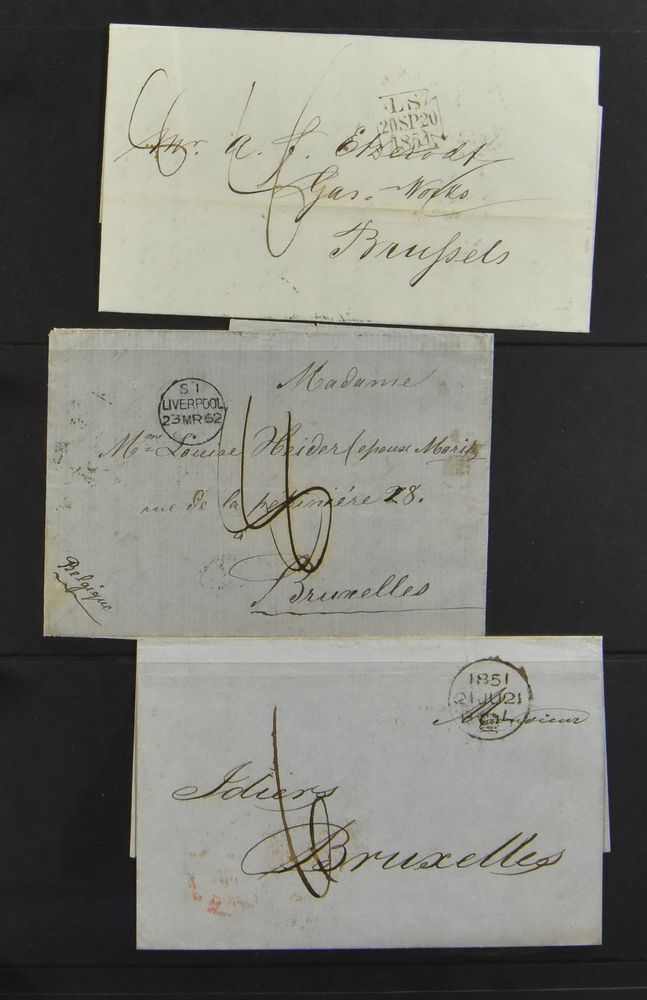 LS
20SP20
1851
Mr. A. F. Elserodt
Gas-Works
Brussels
S 1
LIVERPOOL
23MR52
Madame
Mme Louise Heider (epouse Moritz
rue de la pepinière 28.
à
Bruxelles
Belgique
1851
21JU21
Monsieur
Idiers
Bruxelles
6